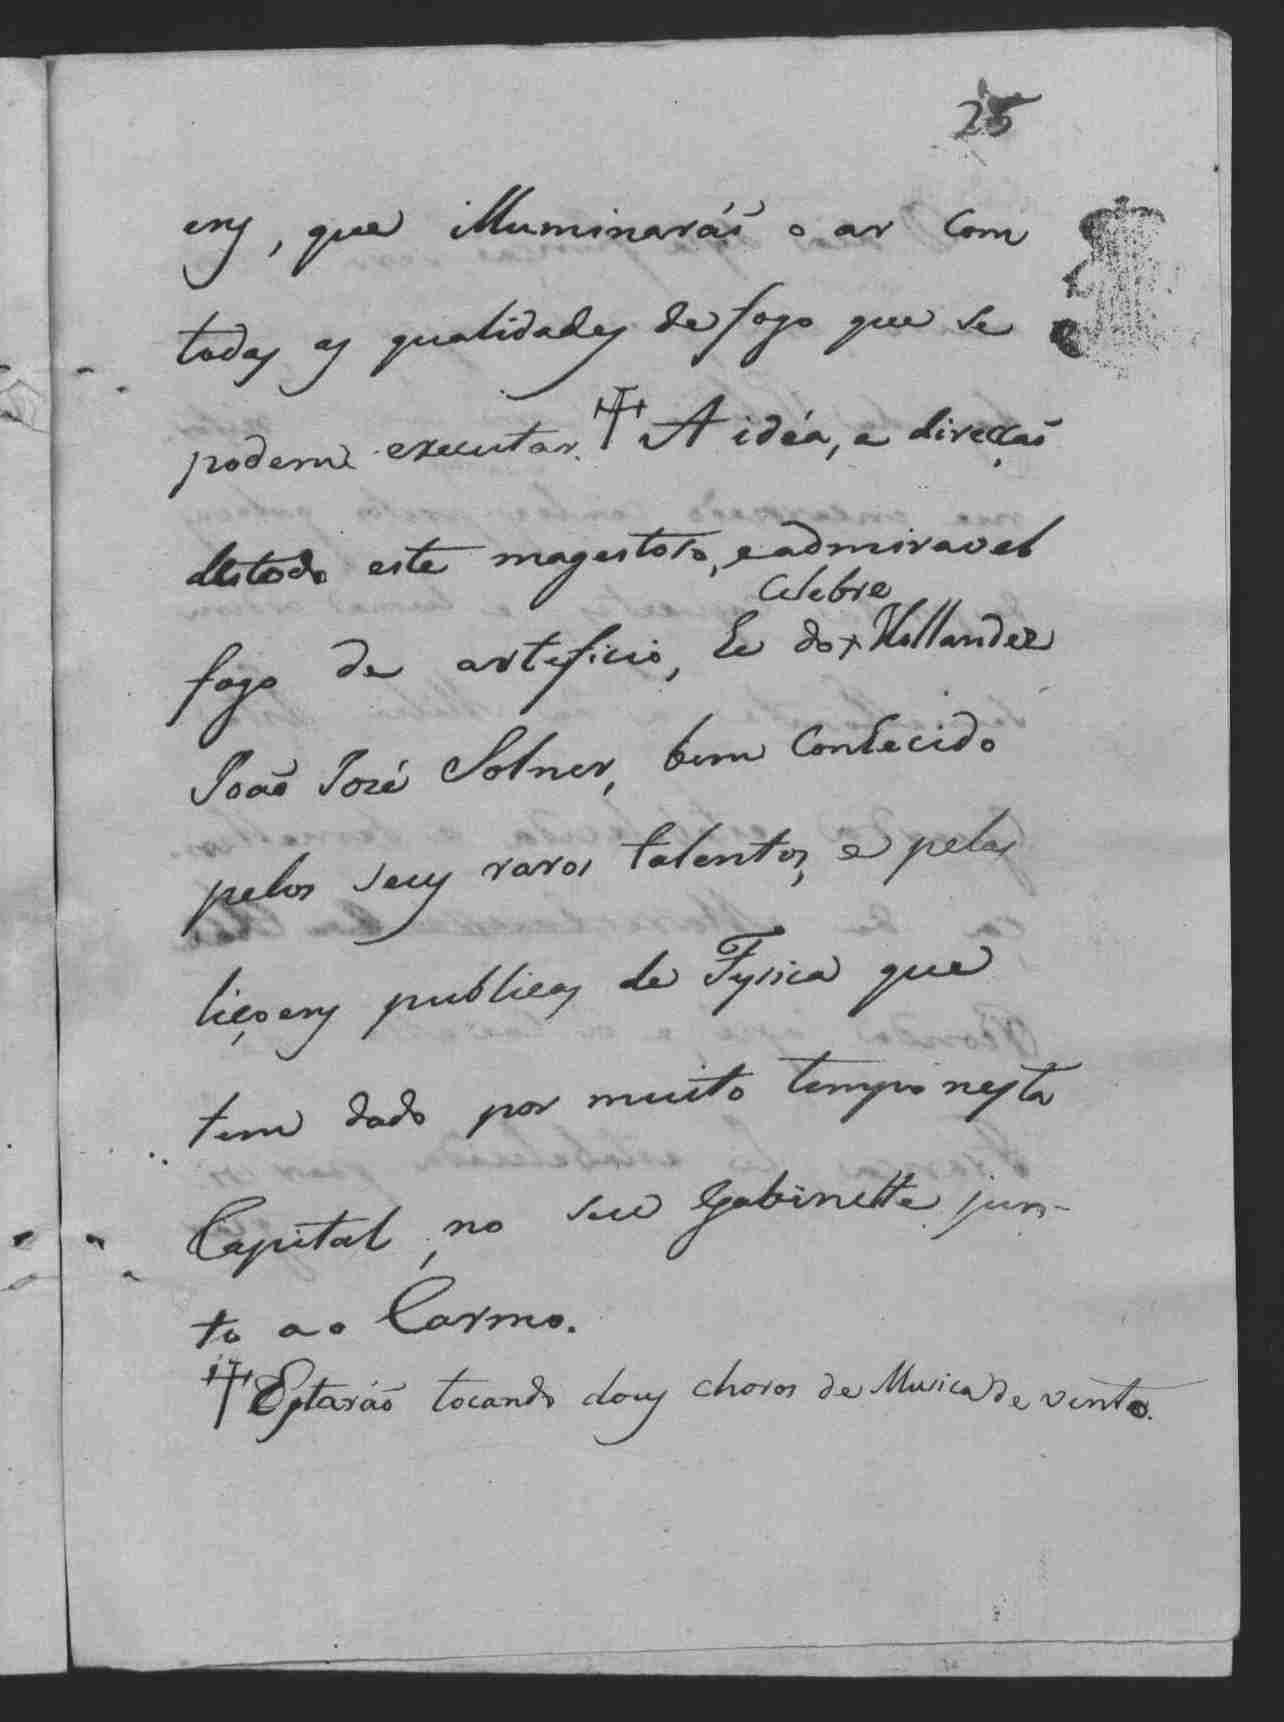 25
ens, que illuminaráõ o ar com
todas as qualidades de fogo que se
podem executar. A idéa, e direcçaõ
destodo este magestoso, e admiravel
celebre
fogo de arteficio, he do Hollandez
Joaõ José Solner, bem conhecido
pelos seus raros talentos, e pelas
liçoens publicas de Fysica que
tem dado por muito tempo nesta
Capital, no seu Gabinette jun-
to ao Carmo.
Estaráõ tocando dous choros de Musica de vento.